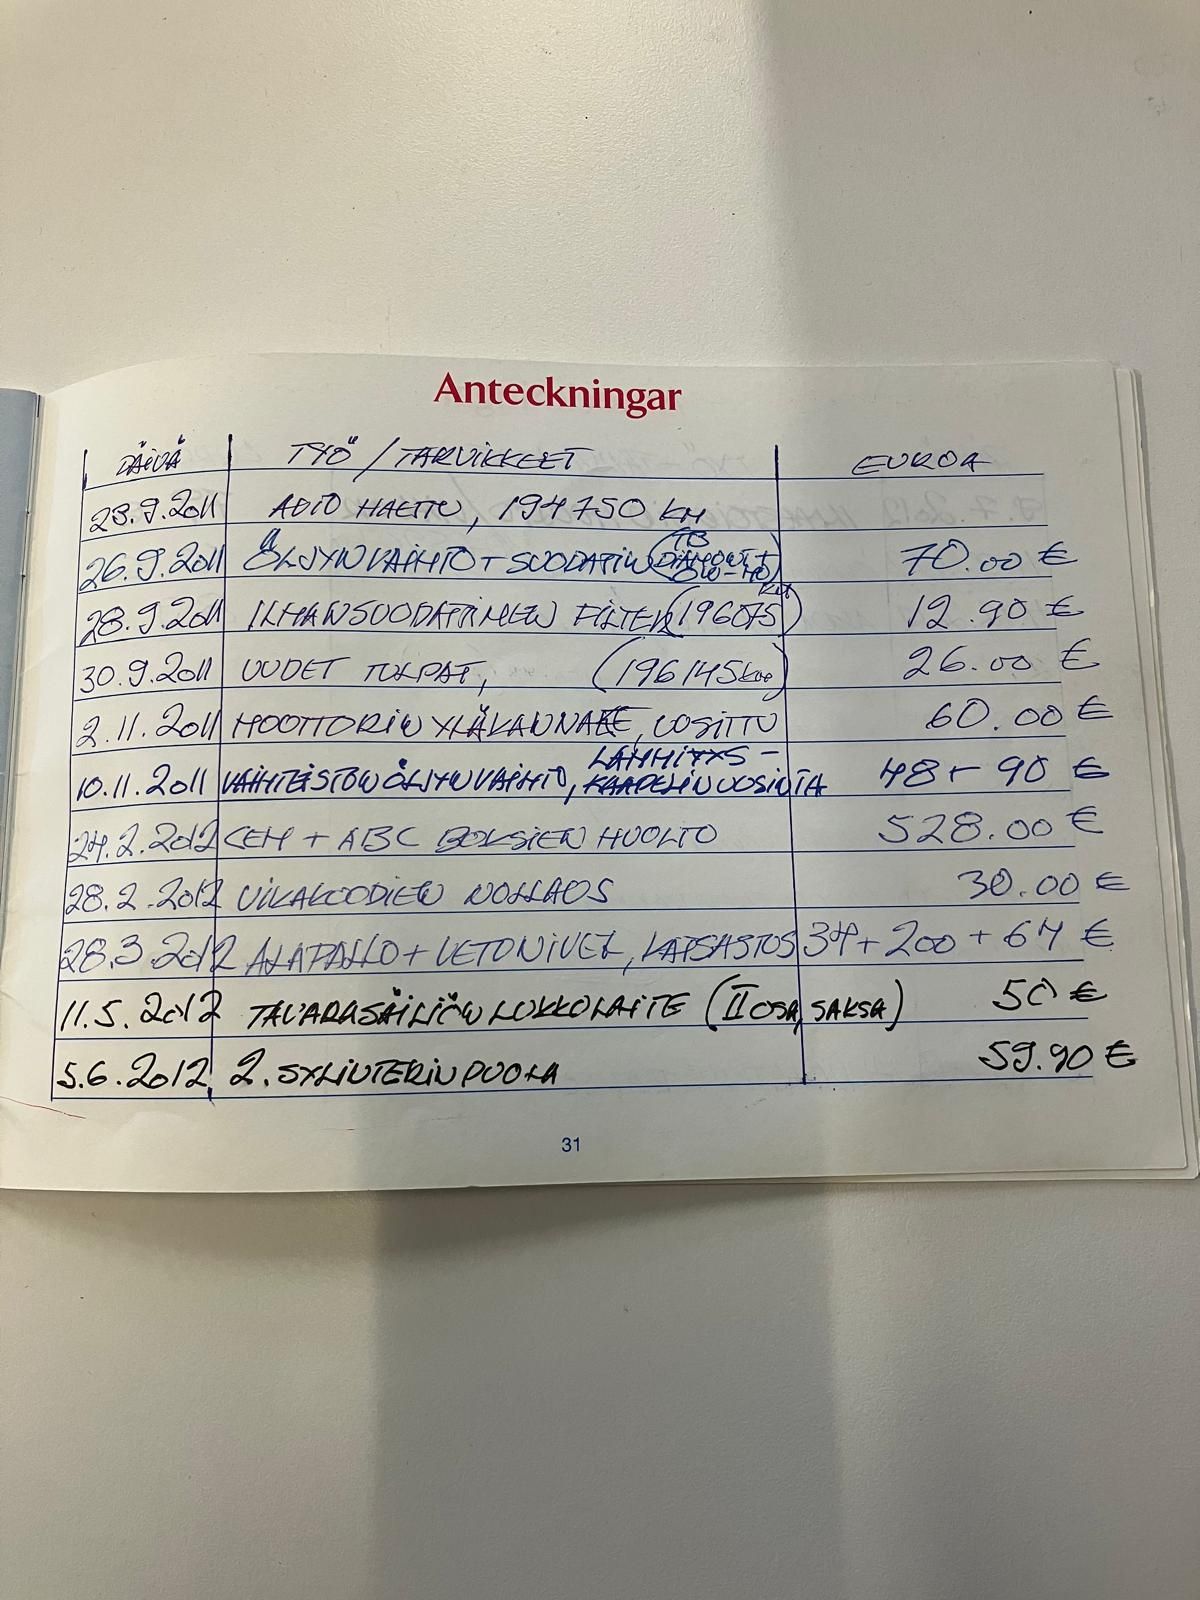 Anteckningar
PÄIVÄ TYÖ / TARVIKKEET EUROA
23.9.2011 AUTO HAETTU, 194750 KM
26.9.2011 ÖLJYNVAIHTO + SUODATIN (TB DIAMOND + 0W-40) 70.00 €
28.9.2011 ILMANSUODATTIMEN FILTER (196075 KM) 12.90 €
30.9.2011 UUDET TULPAT, (196145 km) 26.00 €
2.11.2011 MOOTTORIN YLÄKANNAKE, UUSITTU 60.00 €
LÄMMITYS-
10.11.2011 VAIHTEISTON ÖLJYNVAIHTO, KAAPELIN UUSINTA 48 + 90 €
24.2.2012 CEM + ABC BOKSIEN HUOLTO 528.00 €
28.2.2012 VIKAKOODIEN NOLLAUS 30.00 €
28.3.2012 ALAPALLO + VETONIVEL, KATSASTUS 34 + 200 + 67 €
11.5.2012 TAVARASÄILIÖN LUKKOLAITE (II OSA, SAKSA) 50 €
5.6.2012 2. SYLINTERIN PUOLA 59.90 €
31